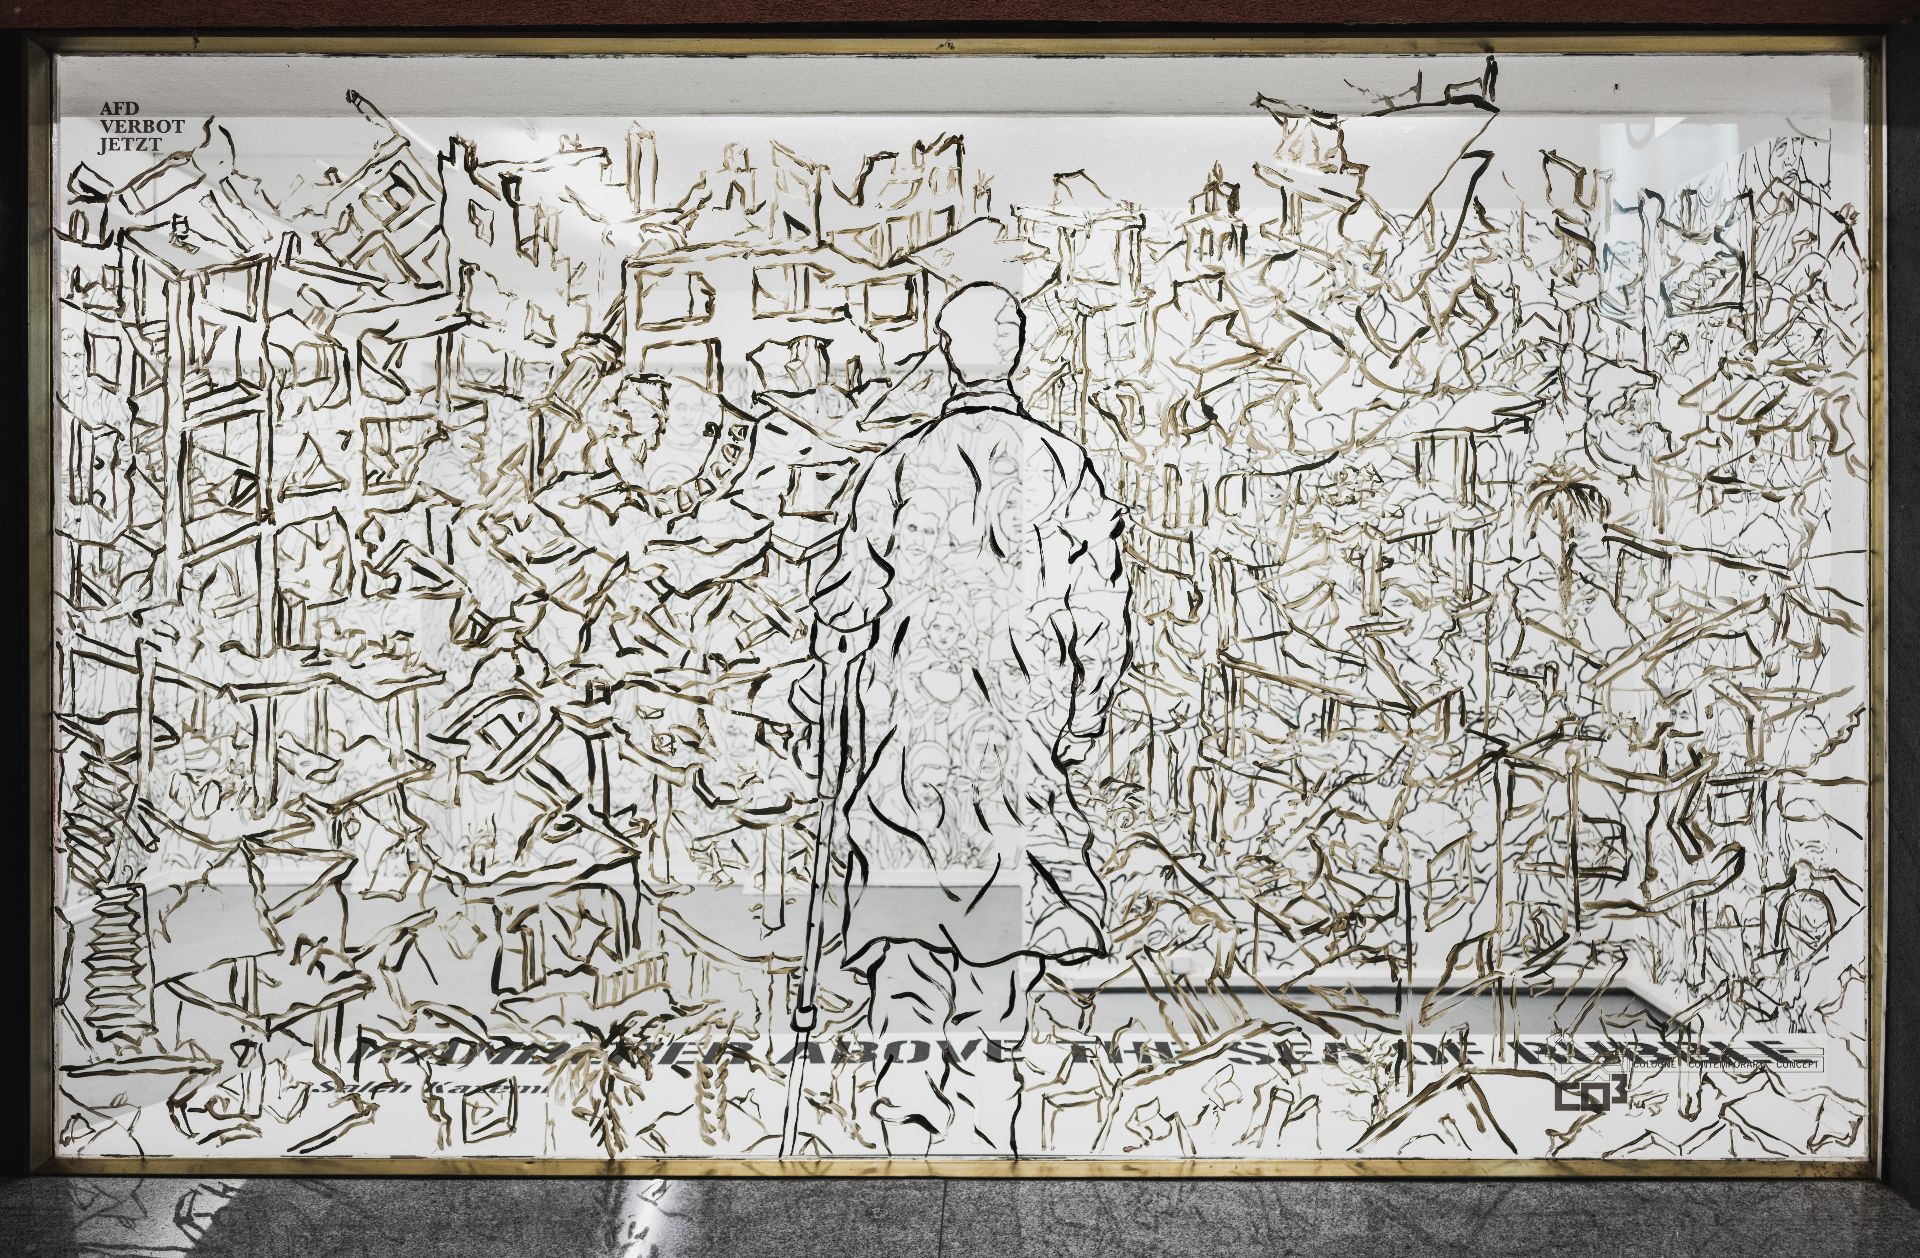 AFD
VERBOT
JETZT
WANDERER ABOVE THE SEA OF RUBBLE
Saleh Kazemi
COLOGNE CONTEMPORARY CONCEPT
CO3